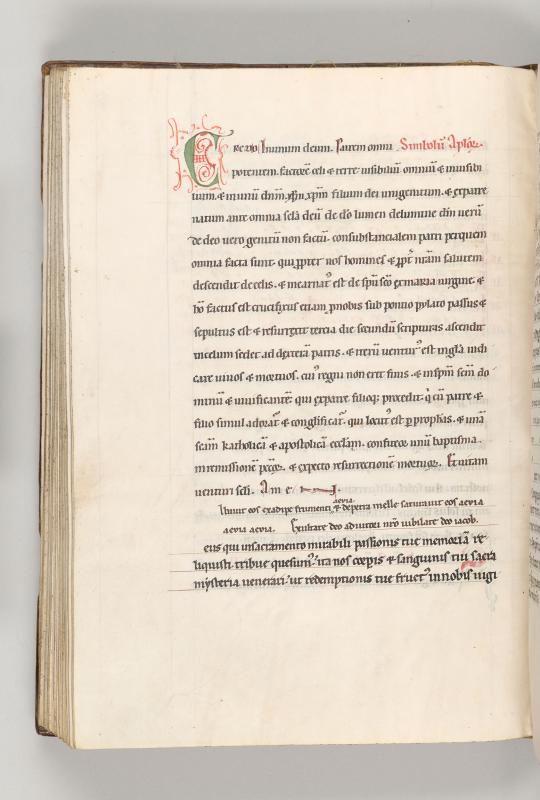 CREdo Inunum deum. Patrem omni Simbolũ Aploꝝ.
potentem. factorẽ celi & terre. uisibiliũ omniũ & inuisibi
lium. & inunũ dnm̃ ihm̃ xpm̃ filium dei unigenitum. & expatre
natum ante omnia sc̃la. deũ de dõ lumen delumine dm̃ uerũ
de deo uero. genitũ non factũ. consubstancialem patri perquem
omnia facta sunt. qui ꝓpter nos homines & ꝓpt̃ nr̃am salutem
descendit decelis. & incarnatꝰ est de spũ sc̃o exmaria uirgine. &
hõ factus est crucifixus etiam ꝓnobis sub pontio pylato passus &
sepultus est & resurrexit tercia die secundũ scripturas ascendit
incelum sedet ad dexterã patris. & iterũ uenturꝰ est inglã iudi
care uiuos & mortuos. cuiꝰ regni non erit finis. & inspm̃ scm̃ do
minũ & uiuificantẽ. qui expatre filioq; procedit. q̃ cũ patre &
filio simul adorat᷑ & conglificat᷑. qui locutꝰ est ꝑ prophãs. & unã
scãm katholicã & apostolicã eccl̃am. confiteor unũ baptisma.
inremissionẽ peccoꝝ. & expecto resurrectionẽ mortuoꝝ. Et uitam
uenturi scl̃i. A m e n.
aevia.
Cibauit eos exadipe frumenti, & depetra melle saturauit eos aevia
aevia aevia. Exultate deo adiutori nr̃o iubilate deo iacob.
eus qui insacramento mirabili passionis tue memoriã re
liquisti. tribue quesumꝰ. ita nos corporis & sanguinis tui sacra
mysteria uenerari. ut redemptionis tue fructꝰ innobis iugi